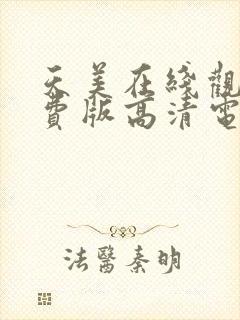 天美在綫觀
費版高清電
法醫秦明